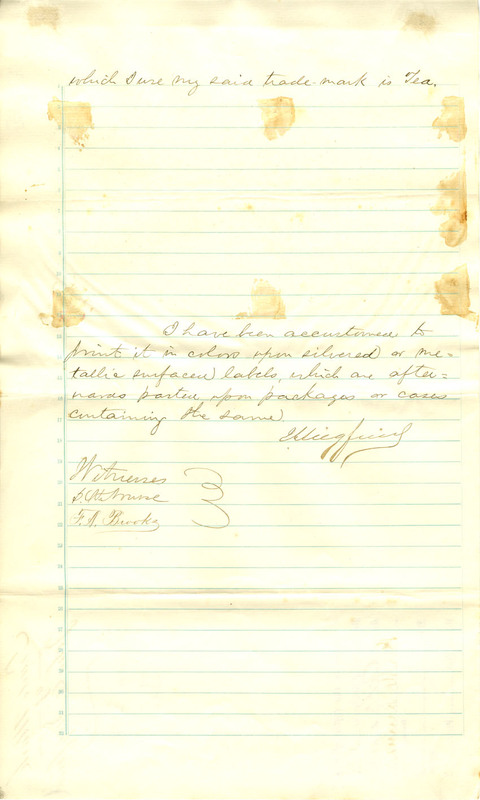 which I use my said trade-mark is Tea.
I have been accustomed to
print it in colors upon silvered or me=
tallic surfaced labels, which are after=
wards pasted upon packages or cases
containing the same.
Witnesses
F. A. Brooks